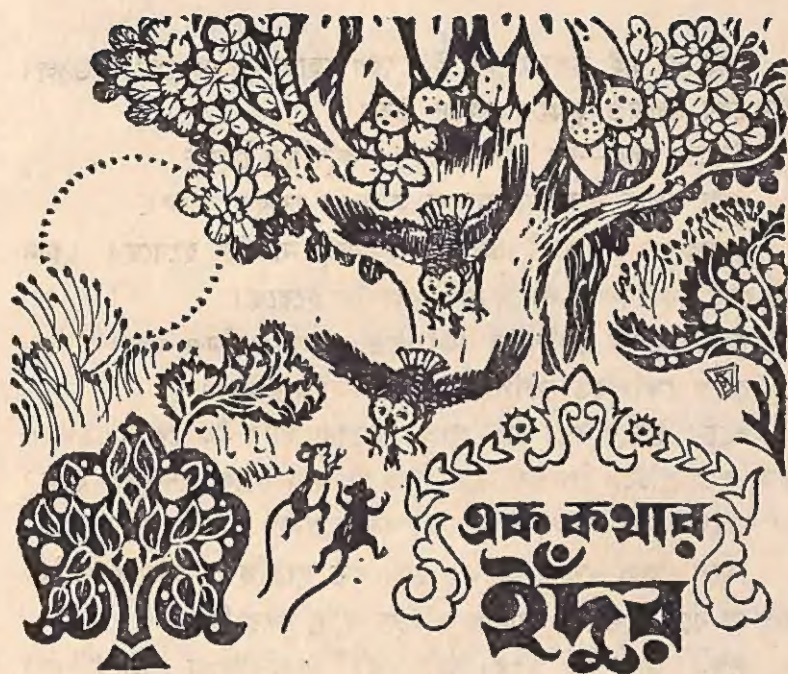 এক কথার
ইঁদুর